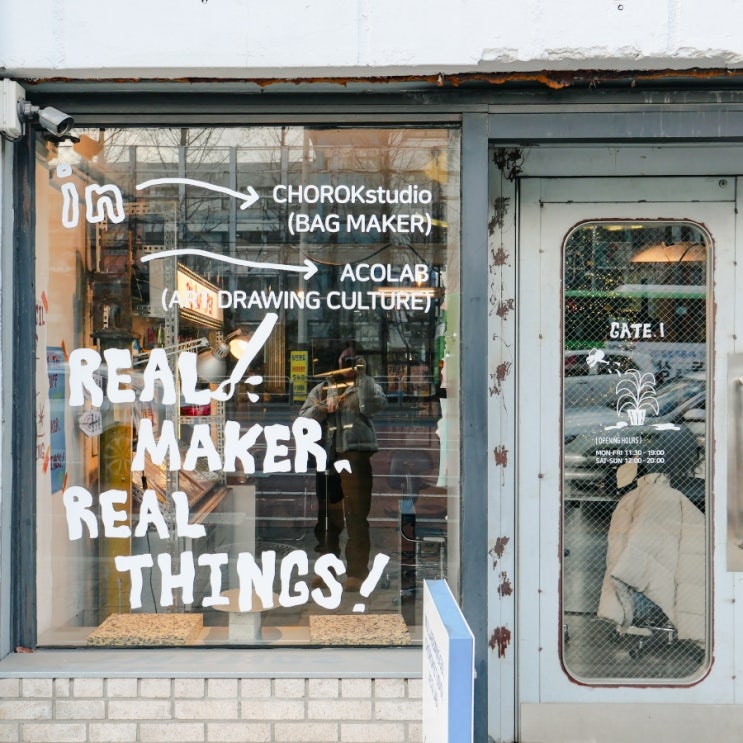 in
CHOROKstudio
(BAG MAKER)
ACOLAB
(ART DRAWING CULTURE)
REAL
MAKER.
REAL
THINGS!
GATE 1
[OPENING HOURS]
MON-FRI 11:30 - 19:00
SAT-SUN 12:00 - 20:00